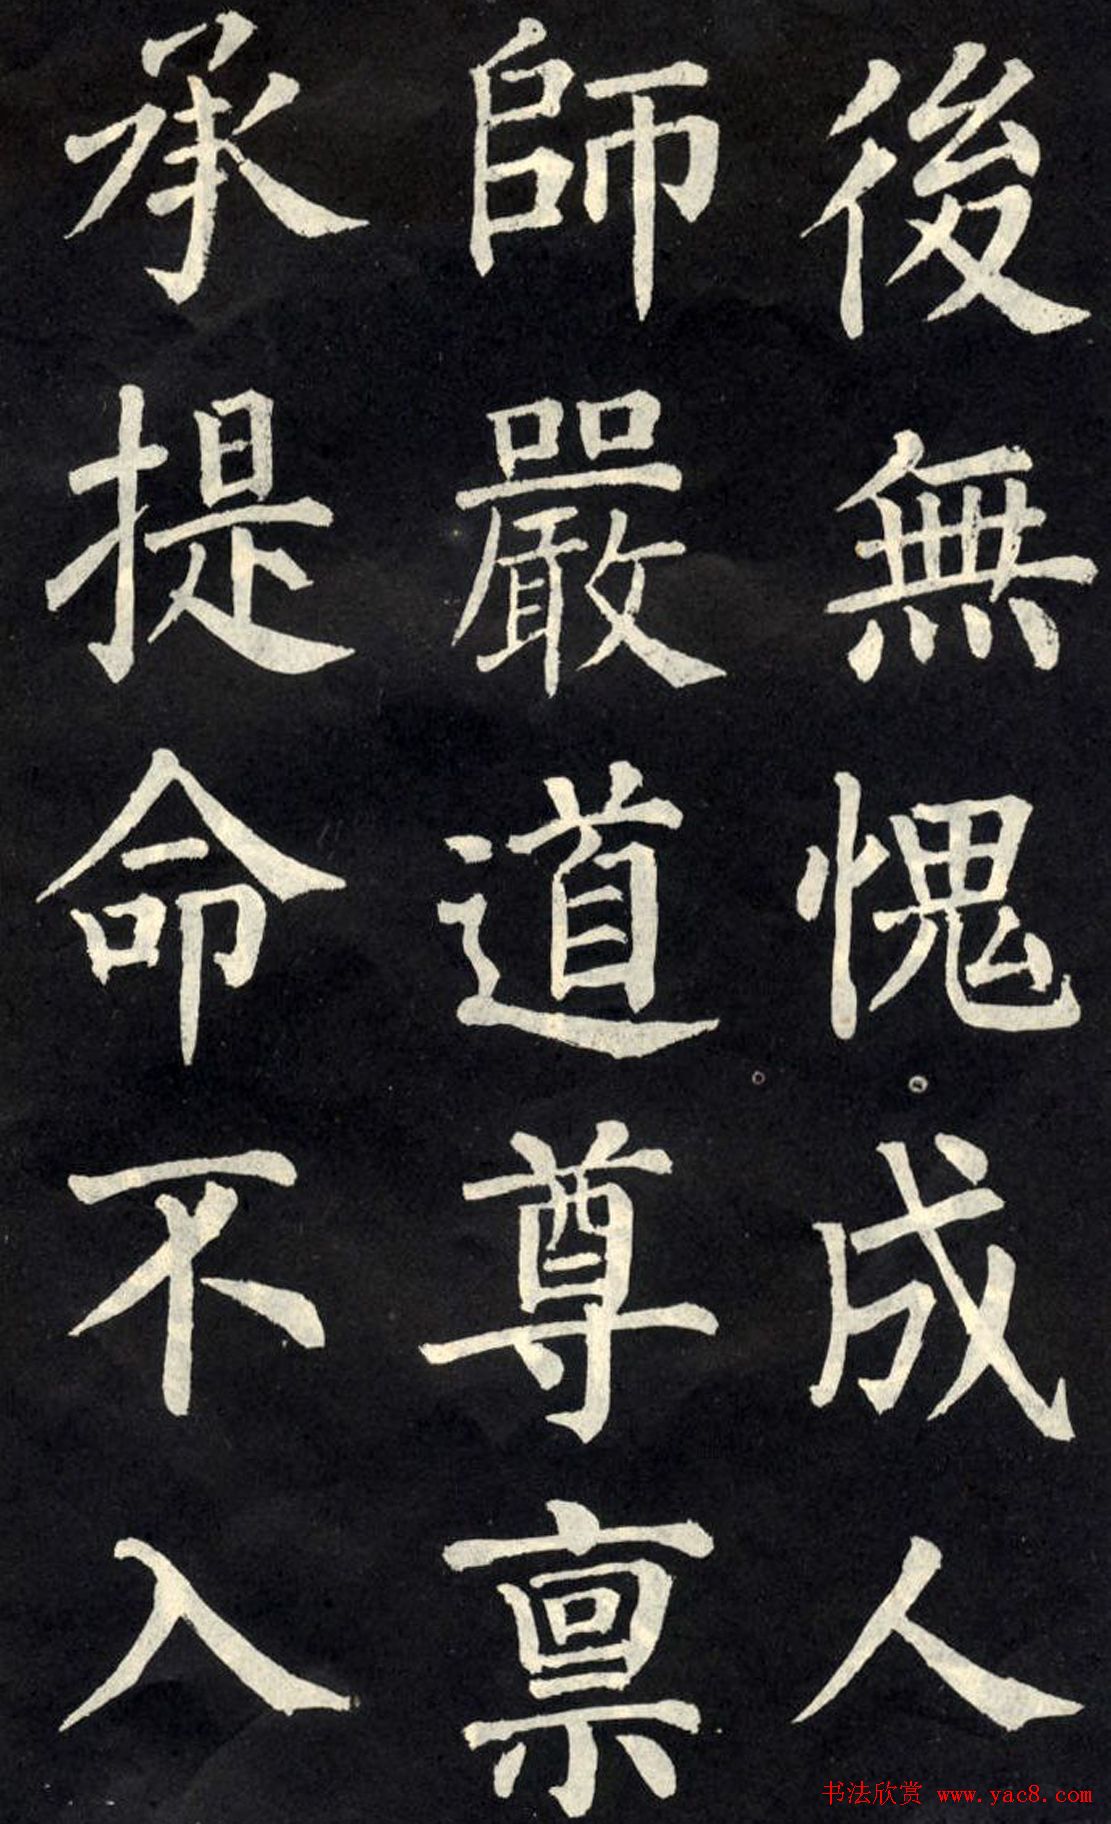 後無愧成人
師嚴道尊稟
承提命不入
书法欣赏 www.yac8.com